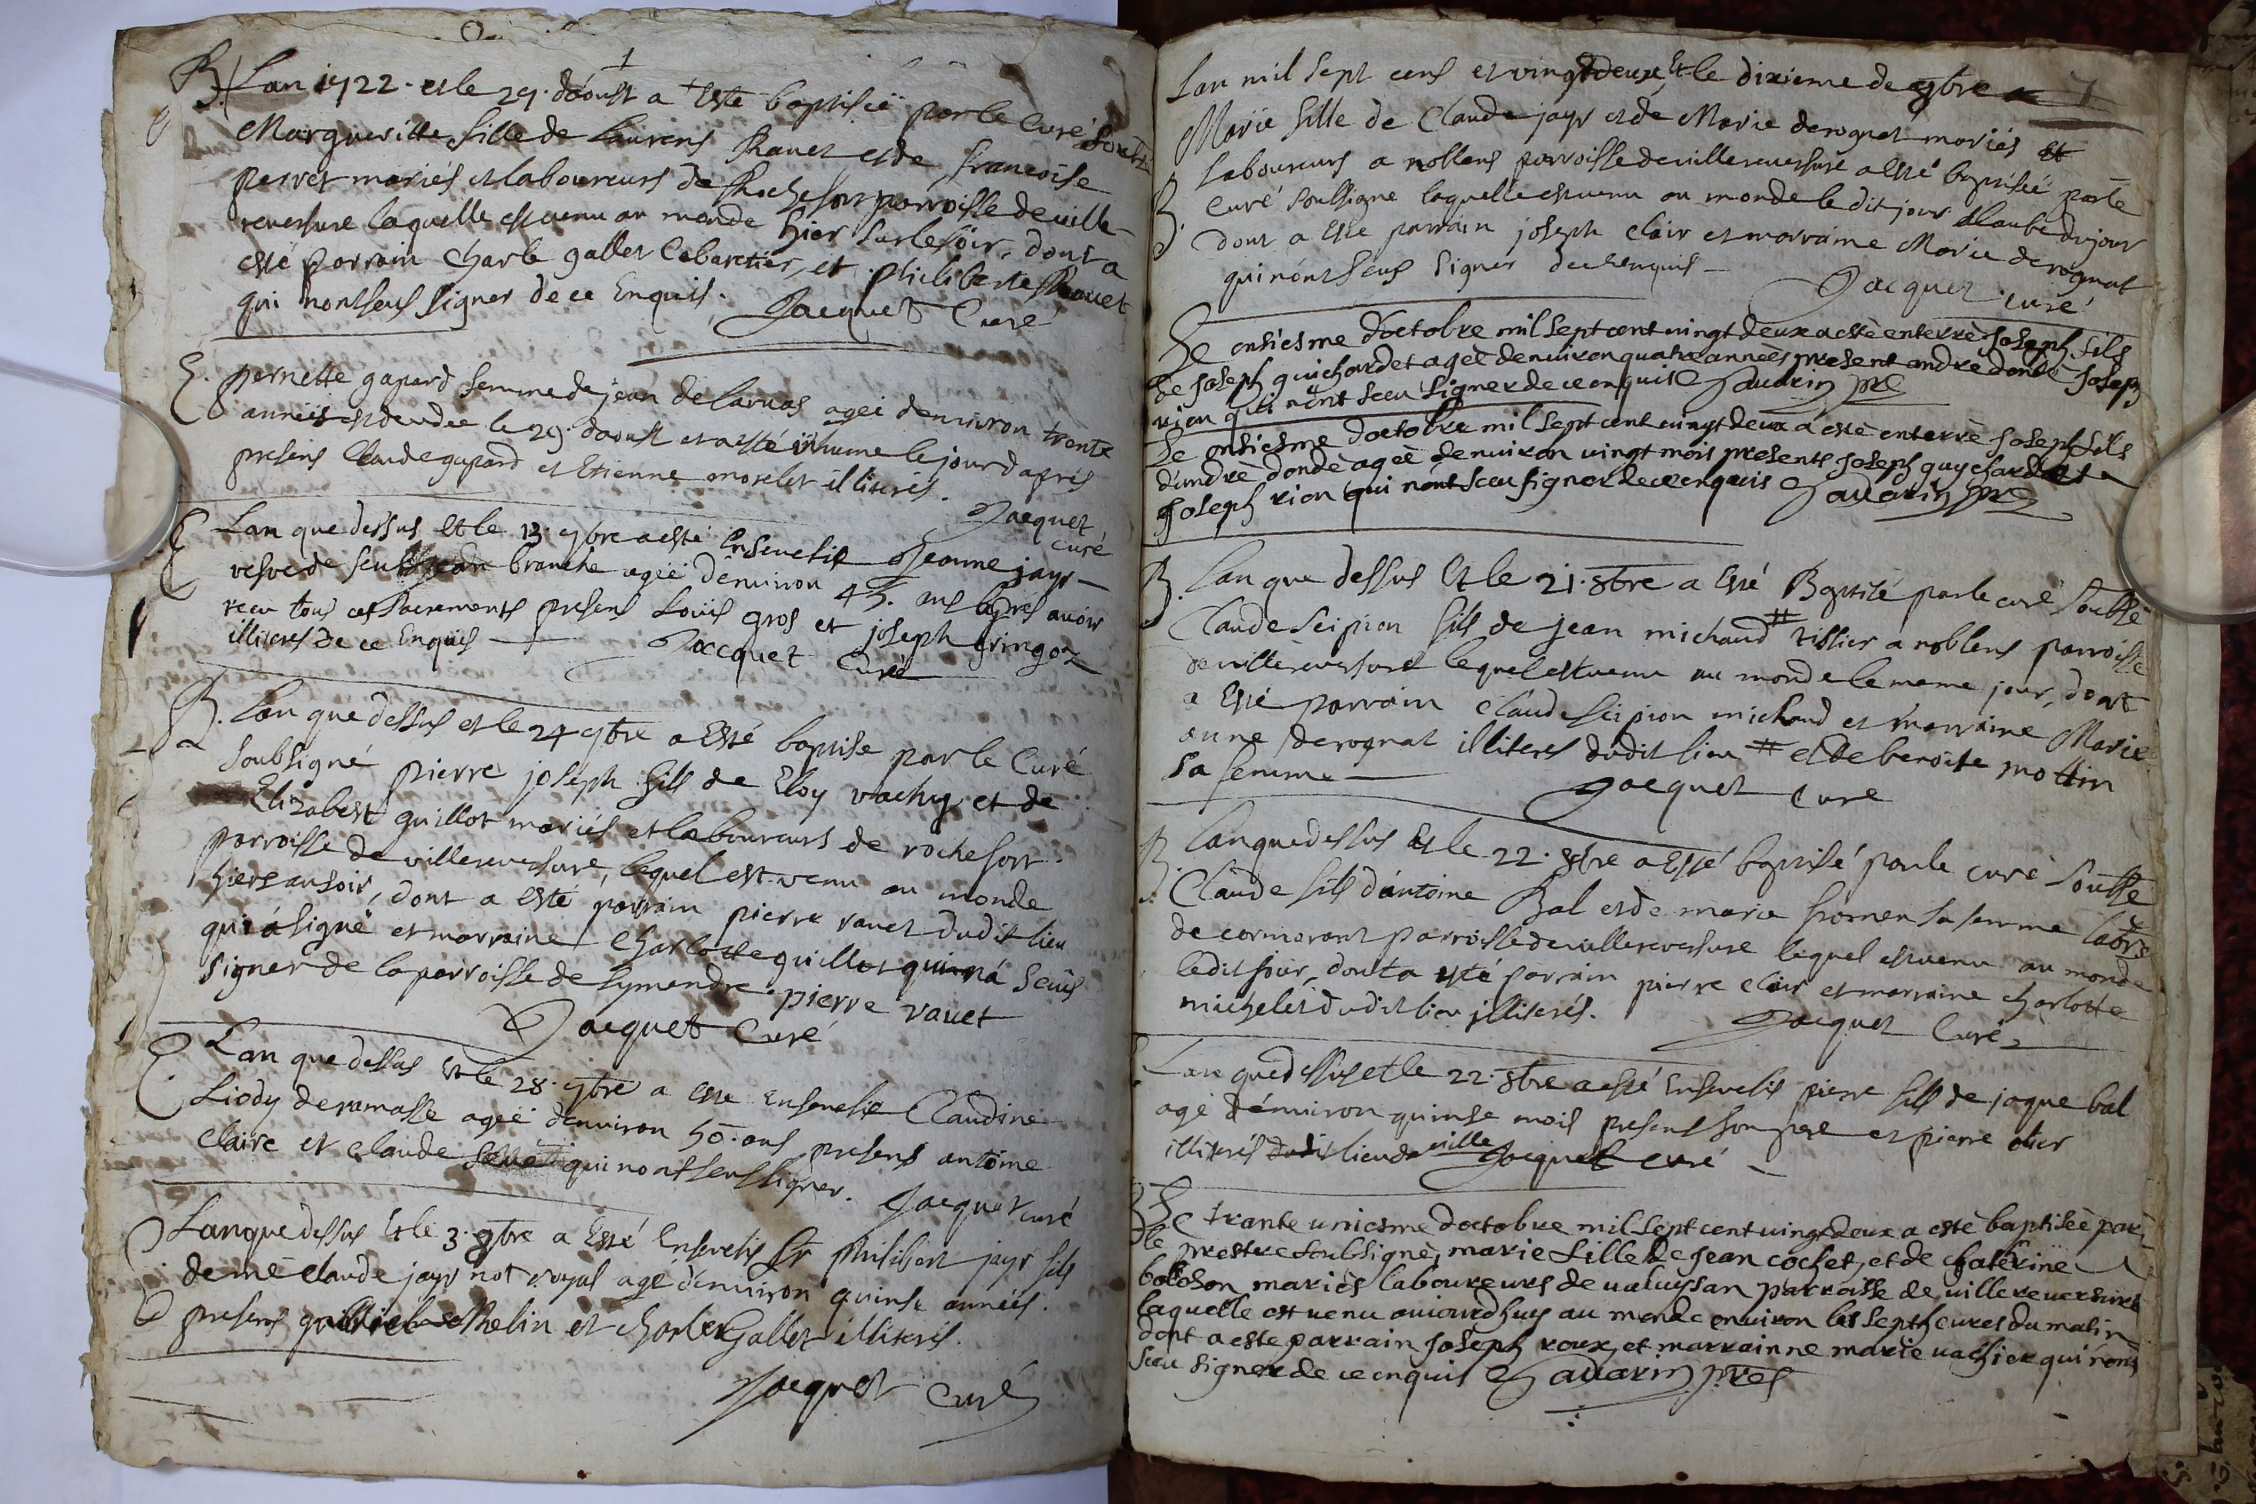 B. Lan 1722 . et le 29 . daoust a Esté baptisée par le Curé soubs.
Margueritte fille de Laurens Ravet et de francoise
perret mariés et laboureurs de Rochefort parroisse de ville
reversure laquelle est venu au monde hier sur le soir, dont a
esté parrain Charle gallet Cabaretier, et philiberte Ravet
qui nont seus signer de ce Enquis. Jacquet Curé
E. pernette gapard femme de jean delarnas agée denviron trente
années est decedee le 29 . daoust et a esté inhumé le jour dapres
presens Claude gapard et Etienne morelet illiterés.
Jacquet curé
E Lan que dessus Et le 13 . 7bre a esté Ensevelie Jeanne jayr
vefve de feu jean branche agée denviron 45. ans apres avoir
receu tous ces Sacrements presens Louis gros et joseph gringoz
illiteres de ce Enquis Jacquet Curé
B. Lan que dessus et le 24 7bre a Esté baptise par le Curé
soubsigné pierre joseph fils de Eloy vachy et de
Elizabeth guillot mariés et laboureurs de rochefort
parroisse de villereversure, lequel est venu au monde
hiers au soir, dont a esté parrain pierre ravet dudit lieu
qui a signé et marraine Charlotte guillot qui na seus
signer de la parroisse de symandre . pierre ravet
Jacquet Curé
E Lan que dessus Et le 28 . 7bre a este Ensevelie Claudine
Liody deramasse agée denviron 50 . ans presens antoine
Claire et Claude qui nont seus signer. Jacquet curé
Lan que dessus Et le 3 . 8bre a Esté Ensevelis Sr philibert jayr fils
de me Claude jayr not royal agé denviron quinse années .
presens thelin et charle Gallet illiterés.
Jacquet Curé
7
Lan mil sept cens et vingt deux, Et le dixieme de
Marie fille de Claude jayr et de Marie derognat mariés et
laboureurs a noblens parroisse de villereversure a Esté baptisée par le
B. Curé soussigné laquelle est venu au monde le dit jour a laube du jour
dont a Esté parrain joseph Clair et marraine Marie derognat
qui nont seus signer de ce enquis Jacquet curé
Le onsiesme doctobre mil sept cent vingt deux a esté enterré Joseph fils
de Joseph guichardet agée denviron quatre années present andre dondé Joseph
rion qui nont sceu signer de ce enquis Savarin pre
Le onsiesme doctobre mil sept cent vingt deux a esté enterré Joseph fils
dandré dondé agée denviron vingt mois presents Joseph guychardet
Joseph rion qui nont sceu signer de ce enquis Savarin pre
B. Lan que dessus Et le 21 . 8bre a Esté Baptisé par le curé soussé
Claude scipion fils de jean michaud # tissier a noblens parroisse
de villereversure lequel est venu au monde le meme jour, dont
a Esté parrain Claude scipion michaud et marraine Marie
anne derognat illiteres dudit lieu # et de benoite mottin
sa femme Jacquet Curé
B. Lan que dessus Et le 22 . 8bre a Esté baptisé par le curé soussé
Claude fils dantoine Bal et de marie fromen sa femme labrs
de cormorant parroisse de villereversure lequel est venu au monde
ledit jour, dont a esté parrain pierre Clair et marraine charlotte
michelet dudit lieu jlliterés. Jacquet Curé
Lan que dessus et le 22 . 8bre a esté Ensevelis pierre fils de jaque bal
agé denviron quinse mois presens son pere et pierre olier
illiterés dudit lieu de ville Jacquet curé
B Le trante uniesme doctobre mil sept cent vingt deux a esté baptisée par
le prestre soubsigné, marie fille de Jean cochet, et de catherine
bolchon mariés laboureurs de valuissan parroisse de villereversure
laquelle est venu aujourdhuy au monde environ les sept heures du matin
dont a este parrain Joseph roux, et marrainne marie vachier qui nont
sceu signer de ce enquis Savarin pres